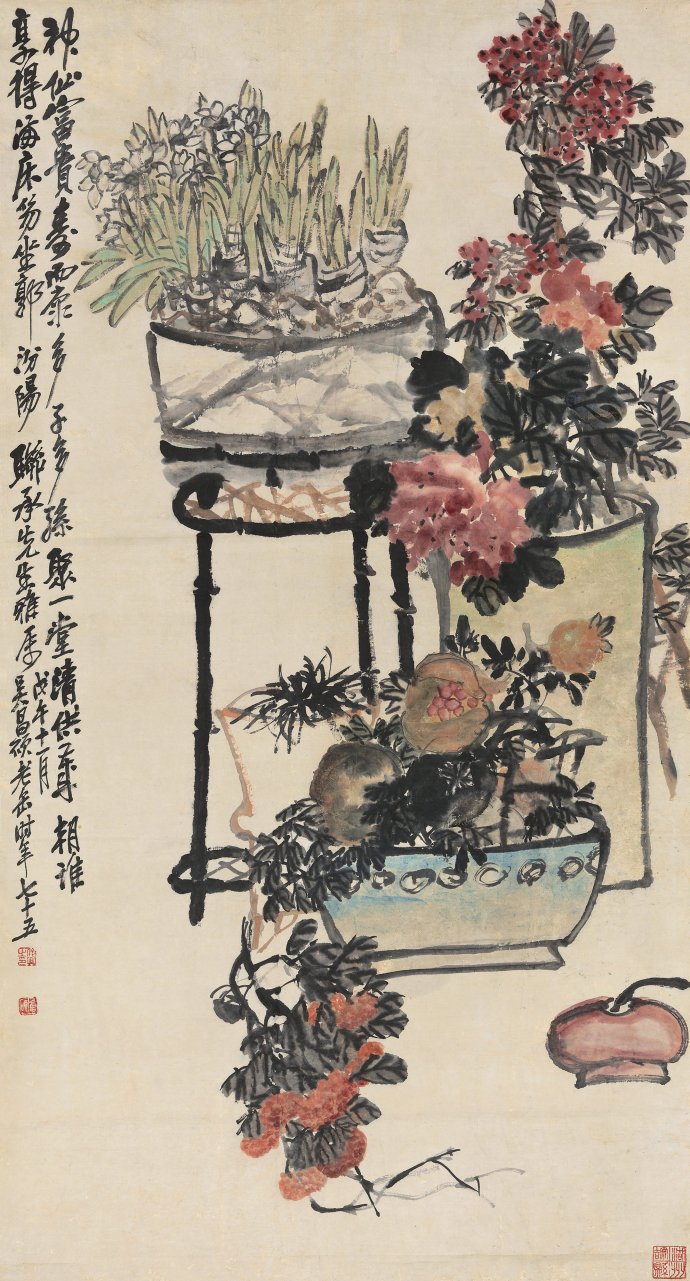 神仙富貴壽而康多子多孫聚一堂清供年朝誰
享得滿床笏坐郭汾陽 聯承先生雅屬
戊午十一月
吳昌碩老缶時年七十五